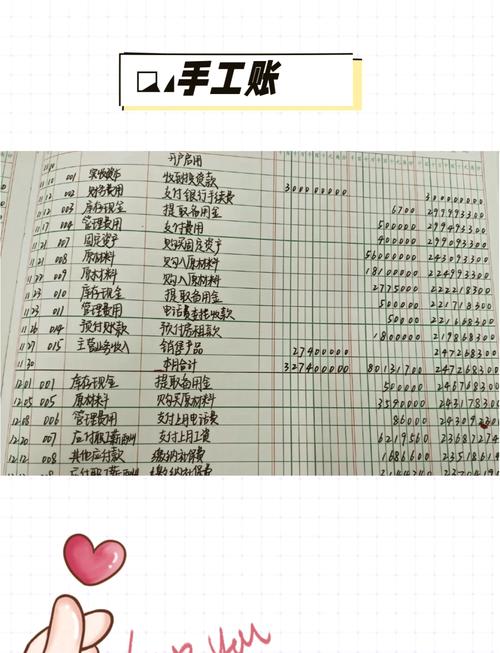 手工账
开户启用
11.10 001 实收资本 收到投资款 300000000 300000000
11.12 002 财务费用 支付银行手续费 6700 299993300
11.12 003 库存现金 提取备用金 500000 299493300
11.17 004 管理费用 支付费用 400000 299093300
11.21 007 固定资产 购买固定资产 56000000 243093300
11.21 008 原材料 购入原材料 18100000 224993300
11.22 009 原材料 购入原材料 2775000 222218300
11.23 010 库存现金 提取备用金 500000 221718300
11.23 011 管理费用 电话费委托收款 50000 221668300
11.26 014 预付账款 预付房租款 1800000 219868300
11.27 015 主营业务收入 销售产品 27400000 247268300
11.30 本月合计 327400000 80131700 247268300
12.01 001 库存现金 提取备用金 500000 246768300
12.05 005 原材料 购买原材料 3590000 243178300
12.08 006 管理费用 支付上月电话费 86000 243092300
12.20 007 应付职工薪酬 支付上月工资 6219560 23687274
12.12 008 其他应付款 缴纳社保费 1686600 23518614
12.12 008 应付职工薪酬 缴纳社保费
You